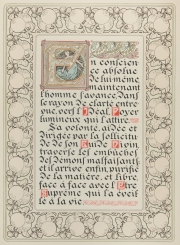 En conscience
absolue
de lui même
maintenant
l'homme s'avance. Dans
le rayon de clarté entre-
vue, vers l'Idéal, Foyer
lumineux qui l'attire.
Sa volonté, aidée et
dirigée par la sollicitu-
de de son Guide Divin
traverse les embûches
des Démons malfaisants
et il arrive enfin, purifié
de la matière, et libre,
face à face avec l'Être
Suprême qui l'a éveil-
lé à la vie